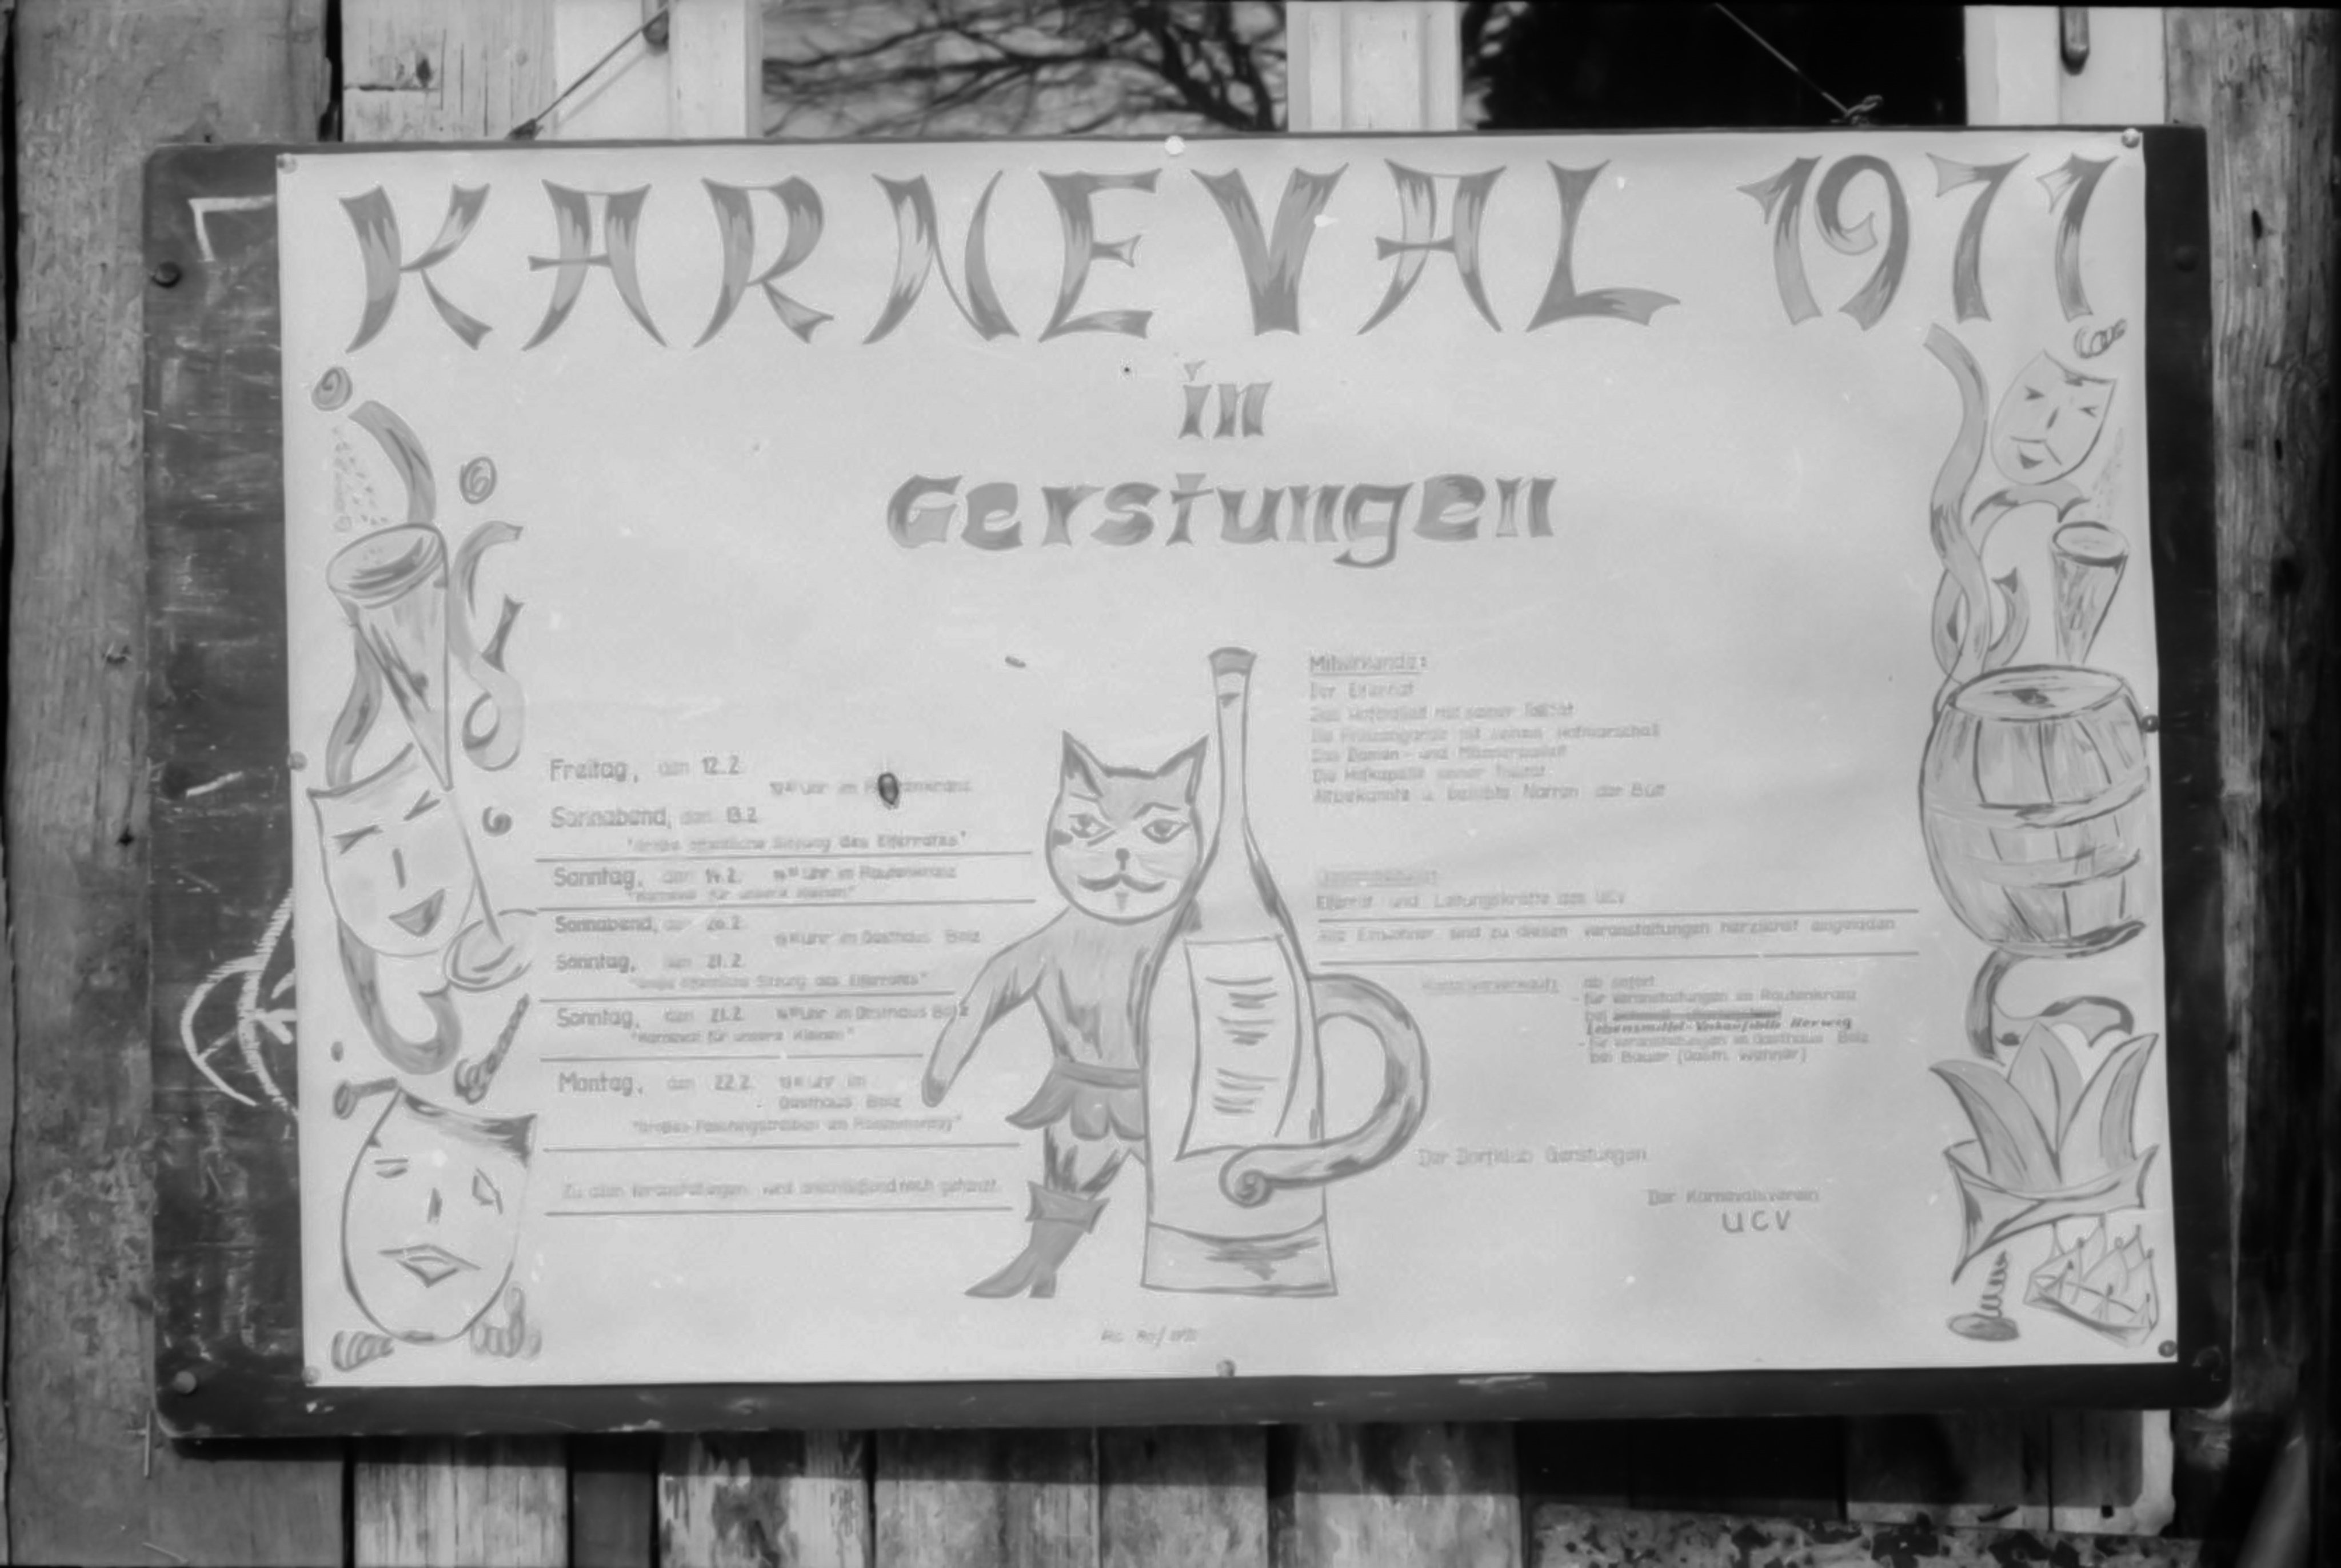 KARNEVAL 1971
in
Gerstungen
Freitag, den 12.2.
19 Uhr im
Sonnabend, den 13.2.
öffentliche Sitzung des Elferrates"
Sonntag, den 14.2. Uhr im Rautenkranz
"Karneval für unsere Kleinen"
Sonnabend, den 20.2.
Uhr im Gasthaus Bolz
Sonntag, den 21.2.
öffentliche Sitzung des Elferrates"
Sonntag, den 21.2. Uhr im Gasthaus Bolz
"Karneval für unsere Kleinen"
Montag, den 22.2. Uhr im
Gasthaus Bolz
"Großes Faschingstreiben am Rosenmontag"
Zu allen Veranstaltungen wird anschließend noch getanzt.
Mitwirkende:
Der Elferrat
mit seiner Tollität
Die Prinzengarde mit seinem Hofmarschall
Das Damen- und Männerballett
Die Hofkapelle seiner Tollität
Altbekannte u. beliebte Narren der Bütt
Elferrat und Leitungskräfte des UCV
Alle Einwohner sind zu diesen Veranstaltungen herzlichst eingeladen
Kartenvorverkauf: ab sofort
- für Veranstaltungen im Rautenkranz
bei
Lebensmittel-Verkaufsstelle Herwig
- für Veranstaltungen im Gasthaus Bolz
bei Bauer (Gastm. Wehner)
Der Dorfklub Gerstungen
Der Karnevalsverein
UCV